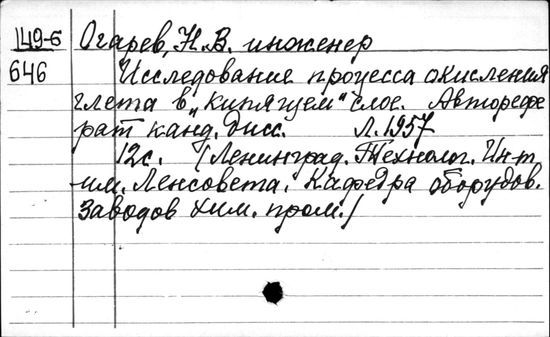 149-6 Огарев, Н.В. инженер
646 Исследование процесса окисления
глета в "кипящем" слое. Авторефе
рат канд. дисс. Л. 1957
12с. (Ленинград. Технолог. Ин-т
им. Ленсовета. Кафедра оборудов.
заводов хим. пром.)